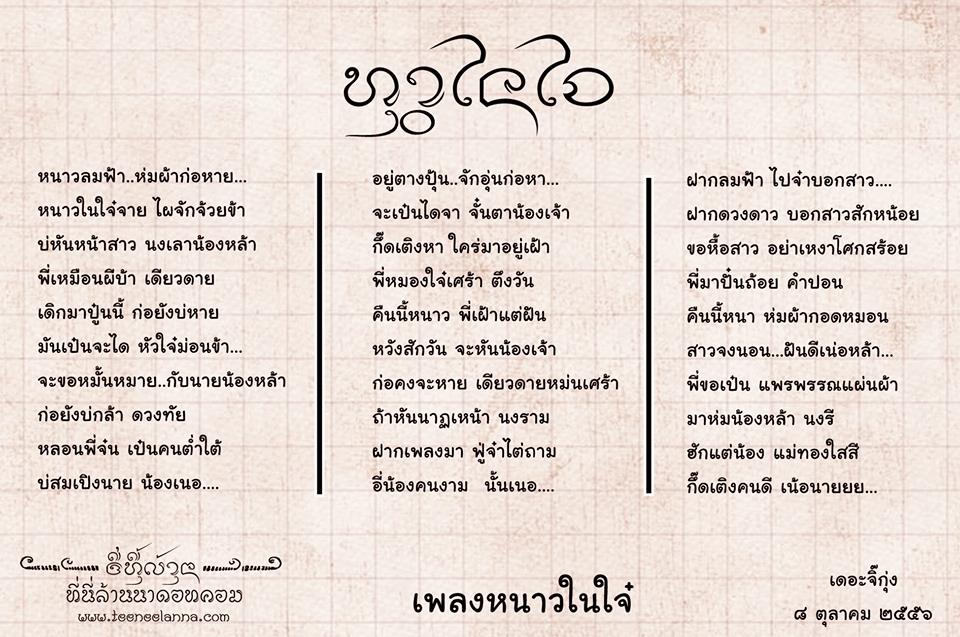 หนาวลมฟ้า..ห่มผ้าก่อหาย...
หนาวในใจ๋จาย ไผจักจ้วยข้า
บ่หันหน้าสาว นงเลาน้องหล้า
พี่เหมือนผีบ้า เดียวดาย
เดิกมาปู๋นนี้ ก่อยังบ่หาย
มันเป๋นจะได หัวใจ๋ม่อนข้า...
จะขอหมั้นหมาย..กับนายน้องหล้า
ก่อยังบ่กล้า ดวงทัย
หลอนพี่จ๋น เป๋นคนต่ำใต้
บ่สมเปิงนาย น้องเนอ....
อยู่ตางปุ้น..จักอุ่นก่อหา...
จะเป๋นไดจา จั๋นตาน้องเจ้า
กึ๊ดเติงหา ใคร่มาอยู่เฝ้า
พี่หมองใจ๋เศร้า ตึงวัน
คืนนี้หนาว พี่เฝ้าแต่ฝัน
หวังสักวัน จะหันน้องเจ้า
ก่อคงจะหาย เดียวดายหม่นเศร้า
ถ้าหันนาฏเหน้า นงราม
ฝากเพลงมา ฟู่จ๋าไต่ถาม
อี่น้องคนงาม นั้นเนอ....
ฝากลมฟ้า ไปจ๋าบอกสาว....
ฝากดวงดาว บอกสาวสักหน้อย
ขอหื้อสาว อย่าเหงาโศกสร้อย
พี่มาปั๋นถ้อย คำปอน
คืนนี้หนา ห่มผ้ากอดหมอน
สาวจงนอน...ฝันดีเน่อหล้า...
พี่ขอเป๋น แพรพรรณแผ่นผ้า
มาห่มน้องหล้า นงรี
ฮักแต่น้อง แม่ทองใสสี
กึ๊ดเติงคนดี เน้อนายยย...
ที่นี่ล้านนาดอทคอม
www.teeneelanna.com
เพลงหนาวในใจ๋
เดอะจิ๊กุ่ง
๘ ตุลาคม ๒๕๕๖